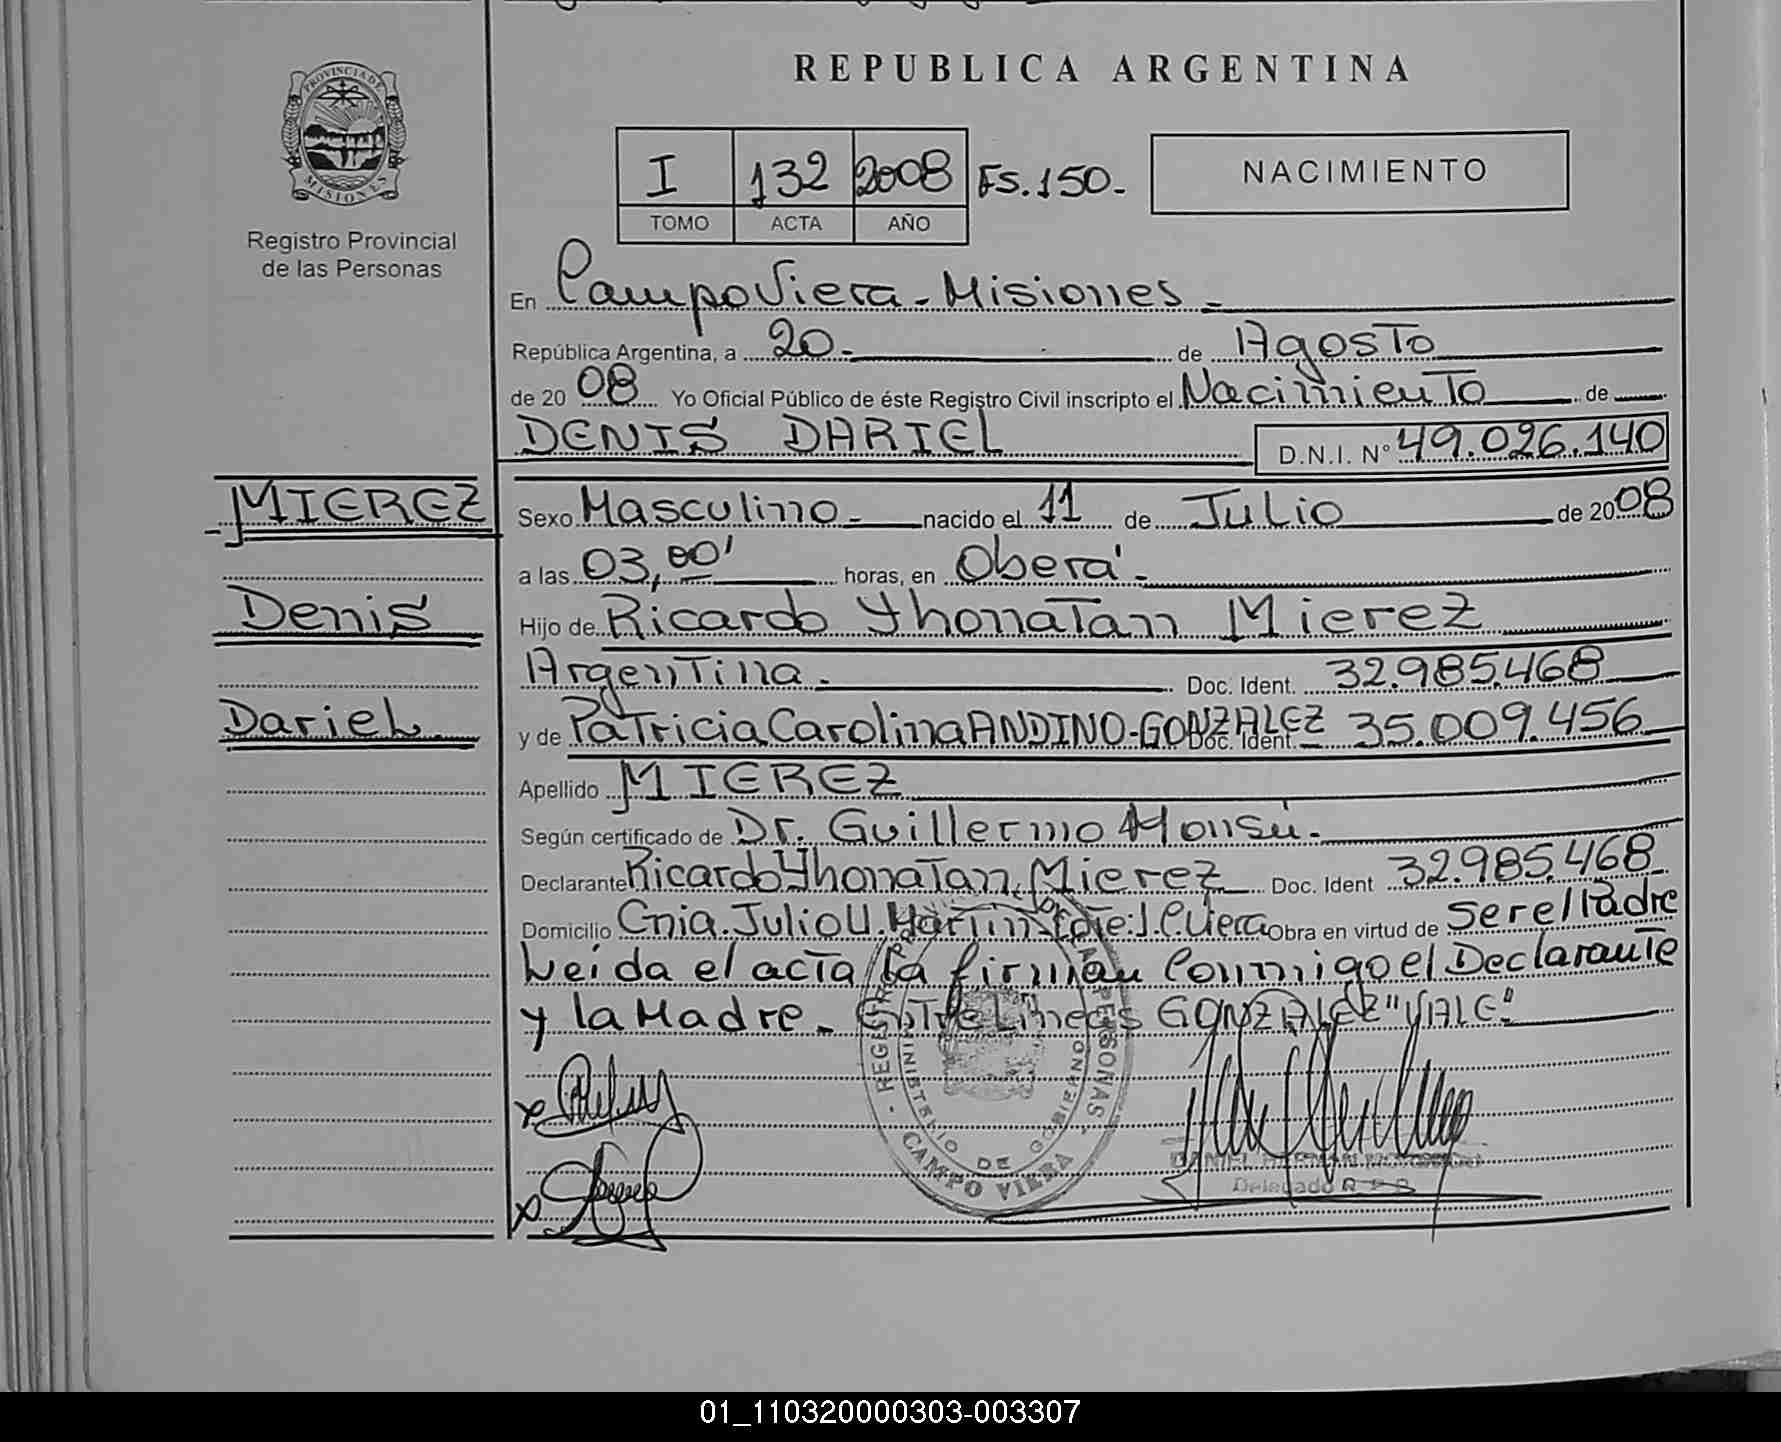 PROVINCIA DE
MISIONES
Registro Provincial
de las Personas
MIEREZ
Denis
Dariel
REPUBLICA ARGENTINA
I 132 2008 Fs. 150.-
TOMO ACTA AÑO
NACIMIENTO
En Campo Viera - Misiones -
República Argentina, a 20.- de Agosto
de 20 08 Yo Oficial Público de éste Registro Civil inscripto el Nacimiento de
DENIS DARIEL D.N.I. N° 49.026.140
Sexo Masculino - nacido el 11 de Julio de 20 08
a las 03,00' horas, en Oberá -
Hijo de Ricardo Yhonatan Mierez
Argentina - Doc. Ident. 32.985.468
y de Patricia Carolina ANDINO-GONZALEZ Doc. Ident. 35.009.456
Apellido MIEREZ
Según certificado de Dr. Guillermo Monsú.-
Declarante Ricardo Yhonatan Mierez Doc. Ident 32.985.468
Domicilio Cnia. Julio U. Martin C. Viera Obra en virtud de Ser el Padre
Leída el acta la firman Conmigo el Declarante
y la Madre.- Entre Lineas GONZALEZ "VALE"
REGISTRO PERSONAS
MINISTERIO DE GOBIERNO
CAMPO VIERA
DANIEL
Delegado R P P
01_110320000303-003307